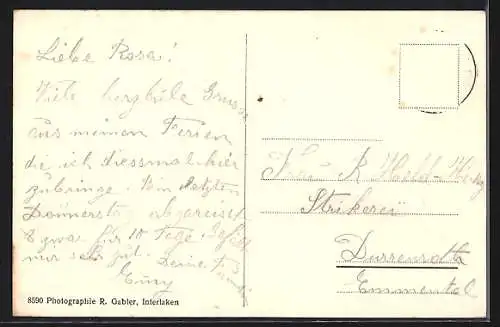 Liebe Rosa!
Viele herzliche Grüsse
aus meinen Ferien
die ich diessmal hier
zubringe. Bin letzten
Donnerstag abgereist
& zwar für 10 Tage. Gefällt
mir sehr gut. Deine
Emy
8590 Photographie R. Gabler, Interlaken
Frau R. Held-
Strikerei
Dürrenroth
Emmental